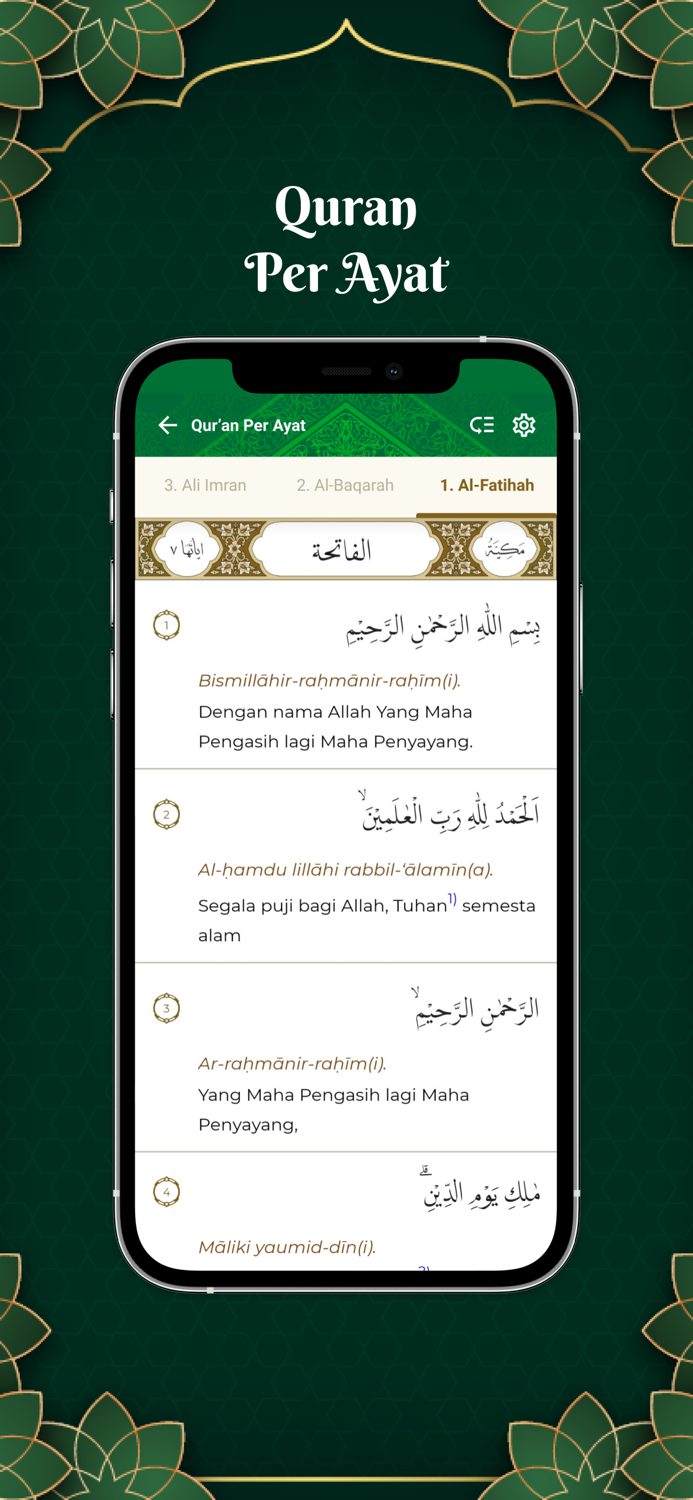 Quran
Per Ayat
Qur'an Per Ayat
3. Ali Imran 2. Al-Baqarah 1. Al-Fatihah
مَكِّيَّةٌ الفاتحة اٰيَاتُهَا ٧
1 بِسْمِ اللّٰهِ الرَّحْمٰنِ الرَّحِيْمِ
Bismillāhir-raḥmānir-raḥīm(i).
Dengan nama Allah Yang Maha
Pengasih lagi Maha Penyayang.
2 اَلْحَمْدُ لِلّٰهِ رَبِّ الْعٰلَمِيْنَۙ
Al-ḥamdu lillāhi rabbil-‘ālamīn(a).
Segala puji bagi Allah, Tuhan1) semesta
alam
3 الرَّحْمٰنِ الرَّحِيْمِۙ
Ar-raḥmānir-raḥīm(i).
Yang Maha Pengasih lagi Maha
Penyayang,
4 مٰلِكِ يَوْمِ الدِّيْنِۗ
Māliki yaumid-dīn(i).